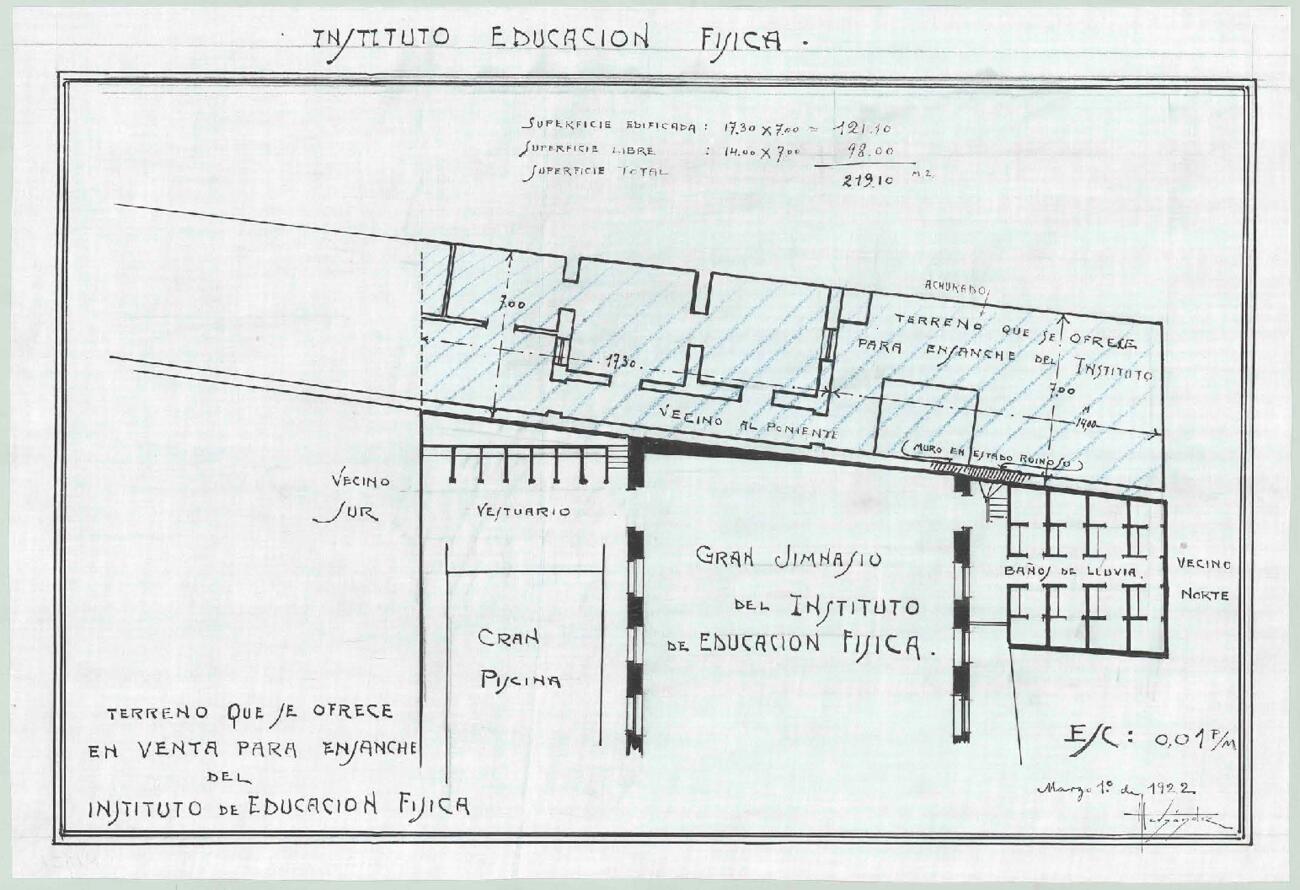 INSTITUTO EDUCACION FISICA.
SUPERFICIE EDIFICADA: 17.30 X 7.00 = 121.10
SUPERFICIE LIBRE : 14.00 X 7.00 98.00
SUPERFICIE TOTAL 219.10 M.2.
ACHURADO
TERRENO QUE SE OFRECE
PARA ENSANCHE DEL INSTITUTO
7.00
17.30
7.00
M
14.00
VECINO AL PONIENTE
(MURO EN ESTADO RUINOSO)
VECINO
SUR
VESTUARIO
GRAN JIMNASIO
DEL INSTITUTO
DE EDUCACION FISICA.
BAÑOS DE LLUVIA.
VECINO
NORTE
GRAN
PISCINA
TERRENO QUE SE OFRECE
EN VENTA PARA ENSANCHE
DEL
INSTITUTO DE EDUCACION FISICA
ESC: 0,01 P/M
Marzo 1º de 1922
Hernández